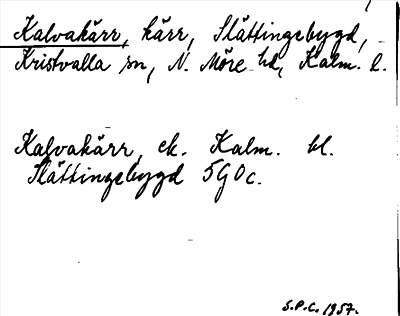 Kalvakärr, kärr, Slättingebygd,
Kristvalla sn, N. Möre hd, Kalm. l.
Kalvakärr, ek. Kalm. bl.
Slättingebygd 5G0c.
S.P.C. 1957.